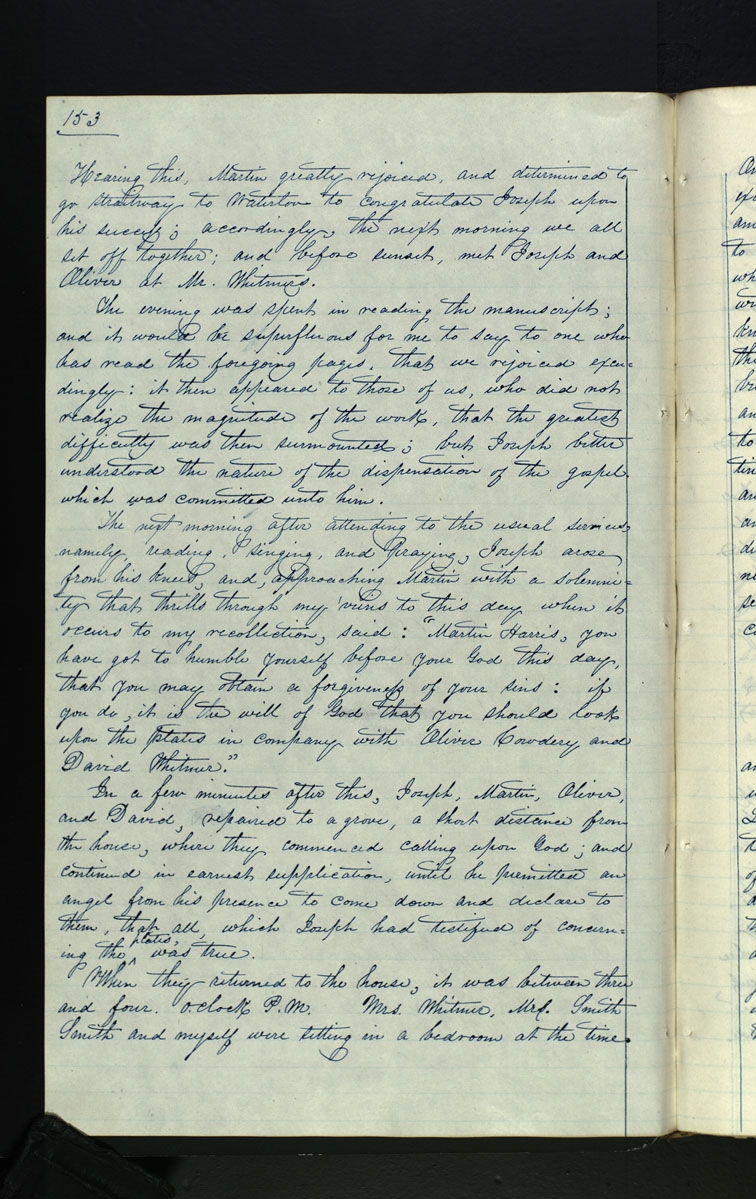 153
Hearing this, Martin greatly rejoiced, and determined to
go straitway to Waterloo to congratulate Joseph upon
his success; accordingly, the next morning we all
set off together; and before sunset, met Joseph and
Oliver at Mr. Whitmers.
The evening was spent in reading the manuscript;
and it would be superfluous for me to say to one who
has read the foregoing pages, that we rejoiced excee=
dingly: it then appeared to those of us, who did not
realize the magnitude of the work, that the greatest
difficulty was then surmounted; but Joseph better
understood the nature of the dispensation of the gospel
which was committed unto him.
The next morning after attending to the usual services,
namely, reading, singing, and Praying, Joseph arose
from his knees, and, approaching Martin with a solemni=
ty that thrills through my veins to this day, when it
occurs to my recollection, said: "Martin Harris, you
have got to humble yourself before your God this day,
that you may obtain a forgiveness of your sins: if
you do, it is the will of God that you should look
upon the plates in company with Oliver Cowdery and
David Whitmer."
In a few minutes after this, Joseph, Martin, Oliver,
and David, repaired to a grove, a short distance from
the house, where they commenced calling upon God; and
continued in earnest supplication, until he permitted an
angel from his presence to come down and declare to
them, that all, which Joseph had testified of concern=
ing the plates, was true.
When they returned to the house, it was between three
and four. o.clock P.M. Mrs. Whitmer, Mr. Smith
Smith and myself were sitting in a bedroom at the time.